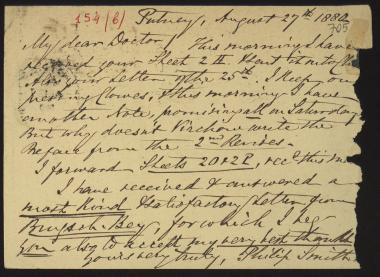 154/6/
Putney, August 27th 1880
705
My dear Doctor, This morning I have
received your Sheet 2
and your Letter of the 25th. I keep on
pressing Clowes, & this morning I have
another Note, promising all on Saturday.
But why doesn't Virchow write the
Preface from the 2nd Revises.
I forward Sheets 20 & 21, recd this m
I have received & answered a
most kind & satisfactory Letter from
Brugsch-Bey, for which I beg
you also to accept my very best thanks
Yours very truly, Philip Smith